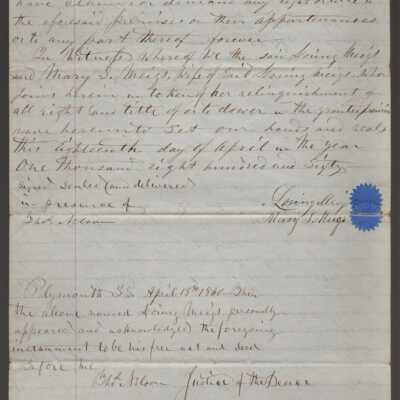 have claim or demand any
the aforesaid premises or their appurtenances
or to any part thereof forever
In Witness whereof We the said Loring Meigs
and Mary S. Meigs, wife of said Loring Meigs who
joins herein in token of her relinquishment of
all right and title of or to dower in the granted premises
have hereunto set our hands and seals
this eighteenth day of April in the year
One thousand eight hundred and Sixty
Signed Sealed and delivered
in presence of
Thos. Nelson
Loring Meigs
Mary S. Meigs
Plymouth SS. April 18th 1860 Then
the above named Loring Meigs personally
appeared and acknowledged the foregoing
instrument to be his free act and deed
Before me
Thos. Nelson Justice of the Peace